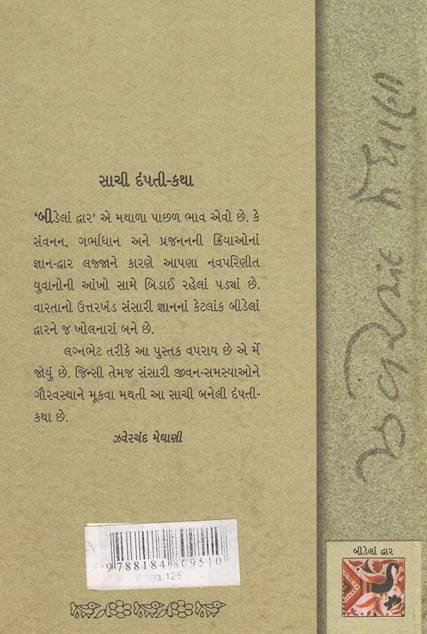 સાચી દંપતી-કથા
'બીડેલાં દ્વાર' એ મથાળા પાછળ ભાવ એવો છે. કે
સંવનન, ગર્ભાધાન અને પ્રજનનની ક્રિયાઓનાં
જ્ઞાન-દ્વાર લજ્જાને કારણે આપણા નવપરિણીત
યુવાનોની આંખો સામે બિડાઈ રહેલાં પડ્યાં છે.
વારતાનો ઉત્તરખંડ સંસારી જ્ઞાનનાં કેટલાંક બીડેલાં
દ્વારને જ ખોલનારાં બને છે.
લગ્નભેટ તરીકે આ પુસ્તક વપરાય છે એ મેં
જોયું છે. જિન્સી તેમજ સંસારી જીવન-સમસ્યાઓને
ગૌરવસ્થાને મૂકવા મથતી આ સાચી બનેલી દંપતી-
કથા છે.
ઝવેરચંદ મેઘાણી
9788184809510
ઝવેરચંદ મેઘાણી
બીડેલાં દ્વાર